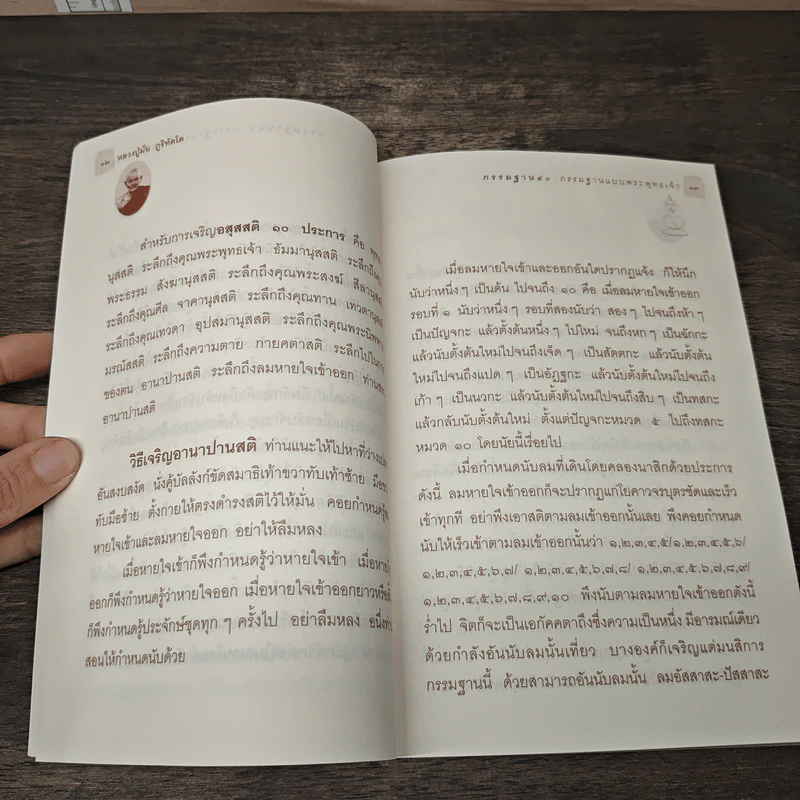 ๑๒ หลวงปู่มั่น ภูริทัตโต
สำหรับการเจริญอสุสสติ ๑๐ ประการ คือ พุทธา
นุสสติ ระลึกถึงคุณพระพุทธเจ้า ธัมมานุสสติ ระลึกถึงคุณ
พระธรรม สังฆานุสสติ ระลึกถึงคุณพระสงฆ์ สีลานุสสติ
ระลึกถึงคุณศีล จาคานุสสติ ระลึกถึงคุณทาน เทวตานุสสติ
ระลึกถึงคุณเทวดา อุปสมานุสสติ ระลึกถึงคุณพระนิพพาน
มรณัสสติ ระลึกถึงความตาย กายคตาสติ ระลึกไปในกาย
ของตน อานาปานสติ ระลึกถึงลมหายใจเข้าออก
อานาปานสติ
วิธีเจริญอานาปานสติ ท่านแนะให้ไปหาที่ว่างเปล่า
อันสงบสงัด นั่งคู้บัลลังก์ขัดสมาธิเท้าขวาทับเท้าซ้าย
ทับมือซ้าย ตั้งกายให้ตรงดำรงสติไว้ให้มั่น คอยกำหนด
หายใจเข้าและลมหายใจออก อย่าให้ลืมหลง
เมื่อหายใจเข้าก็พึงกำหนดรู้ว่าหายใจเข้า เมื่อหายใจ
ออกก็พึงกำหนดรู้ว่าหายใจออก เมื่อหายใจเข้าออกยาวหรือสั้น
ก็พึงกำหนดรู้ประจักษ์ชุดทุก ๆ ครั้งไป อย่าลืมหลง อนึ่งท่าน
สอนให้กำหนดนับด้วย
กรรมฐาน๔๐ : กรรมฐานแบบพระพุทธเจ้า ๑๓
เมื่อลมหายใจเข้าและออกอันใดปรากฏแจ้ง ก็ให้นึก
นับว่าหนึ่ง ๆ เป็นต้น ไปจนถึง ๑๐ คือ เมื่อลมหายใจเข้าออก
รอบที่ ๑ นับว่าหนึ่ง ๆ รอบที่สองนับว่า สอง ๆ ไปจนถึงห้า ๆ
เป็นปัญจกะ แล้วตั้งต้นหนึ่ง ๆ ไปใหม่ จนถึงหก ๆ เป็นฉักกะ
แล้วนับตั้งต้นใหม่ไปจนถึงเจ็ด ๆ เป็นสัตตกะ แล้วนับตั้งต้น
ใหม่ไปจนถึงแปด ๆ เป็นอัฏฐกะ แล้วนับตั้งต้นใหม่ไปจนถึง
เก้า ๆ เป็นนวกะ แล้วนับตั้งต้นใหม่ไปจนถึงสิบ ๆ เป็นทสกะ
แล้วกลับนับตั้งต้นใหม่ ตั้งแต่ปัญจกะหมวด ๕ ไปถึงทสกะ
หมวด ๑๐ โดยนัยนี้เรื่อยไป
เมื่อกำหนดนับลมที่เดินโดยคลองนาสิกด้วยประการ
ดังนี้ ลมหายใจเข้าออกก็จะปรากฏแก่โยคาวจรบุตรชัดและเร็ว
เข้าทุกที อย่าพึงเอาสติตามลมเข้าออกนั้นเลย พึงคอยกำหนด
นับให้เร็วเข้าตามลมเข้าออกนั้นว่า ๑,๒,๓,๔,๕/๑,๒,๓,๔,๕,๖/
๑,๒,๓,๔,๕,๖,๗/ ๑,๒,๓,๔,๕,๖,๗,๘/ ๑,๒,๓,๔,๕,๖,๗,๘,๙/
๑,๒,๓,๔,๕,๖,๗,๘,๙,๑๐ พึงนับตามลมหายใจเข้าออกดังนี้
ร่ำไป จิตก็จะเป็นเอกัคคตาถึงซึ่งความเป็นหนึ่ง มีอารมณ์เดียว
ด้วยกำลังอันนับลมนั้นเที่ยว บางองค์ก็เจริญแต่มนสิการ
กรรมฐานนี้ ด้วยสามารถอันนับลมนั้น ลมอัสสาสะ-ปัสสาสะ